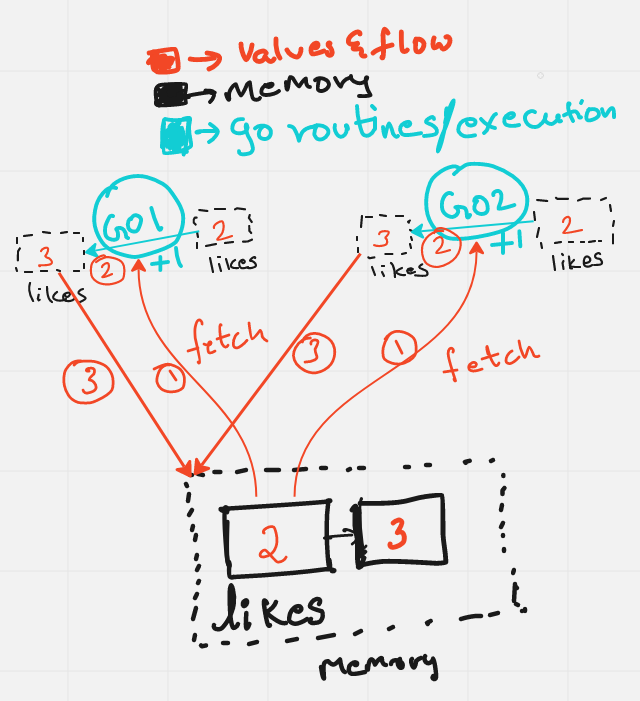 → values & flow
→ memory
→ go routines/execution
GO1
2
likes
+1
3
likes
2
GO2
2
likes
+1
3
likes
2
fetch
fetch
3
1
3
1
2
3
likes
memory